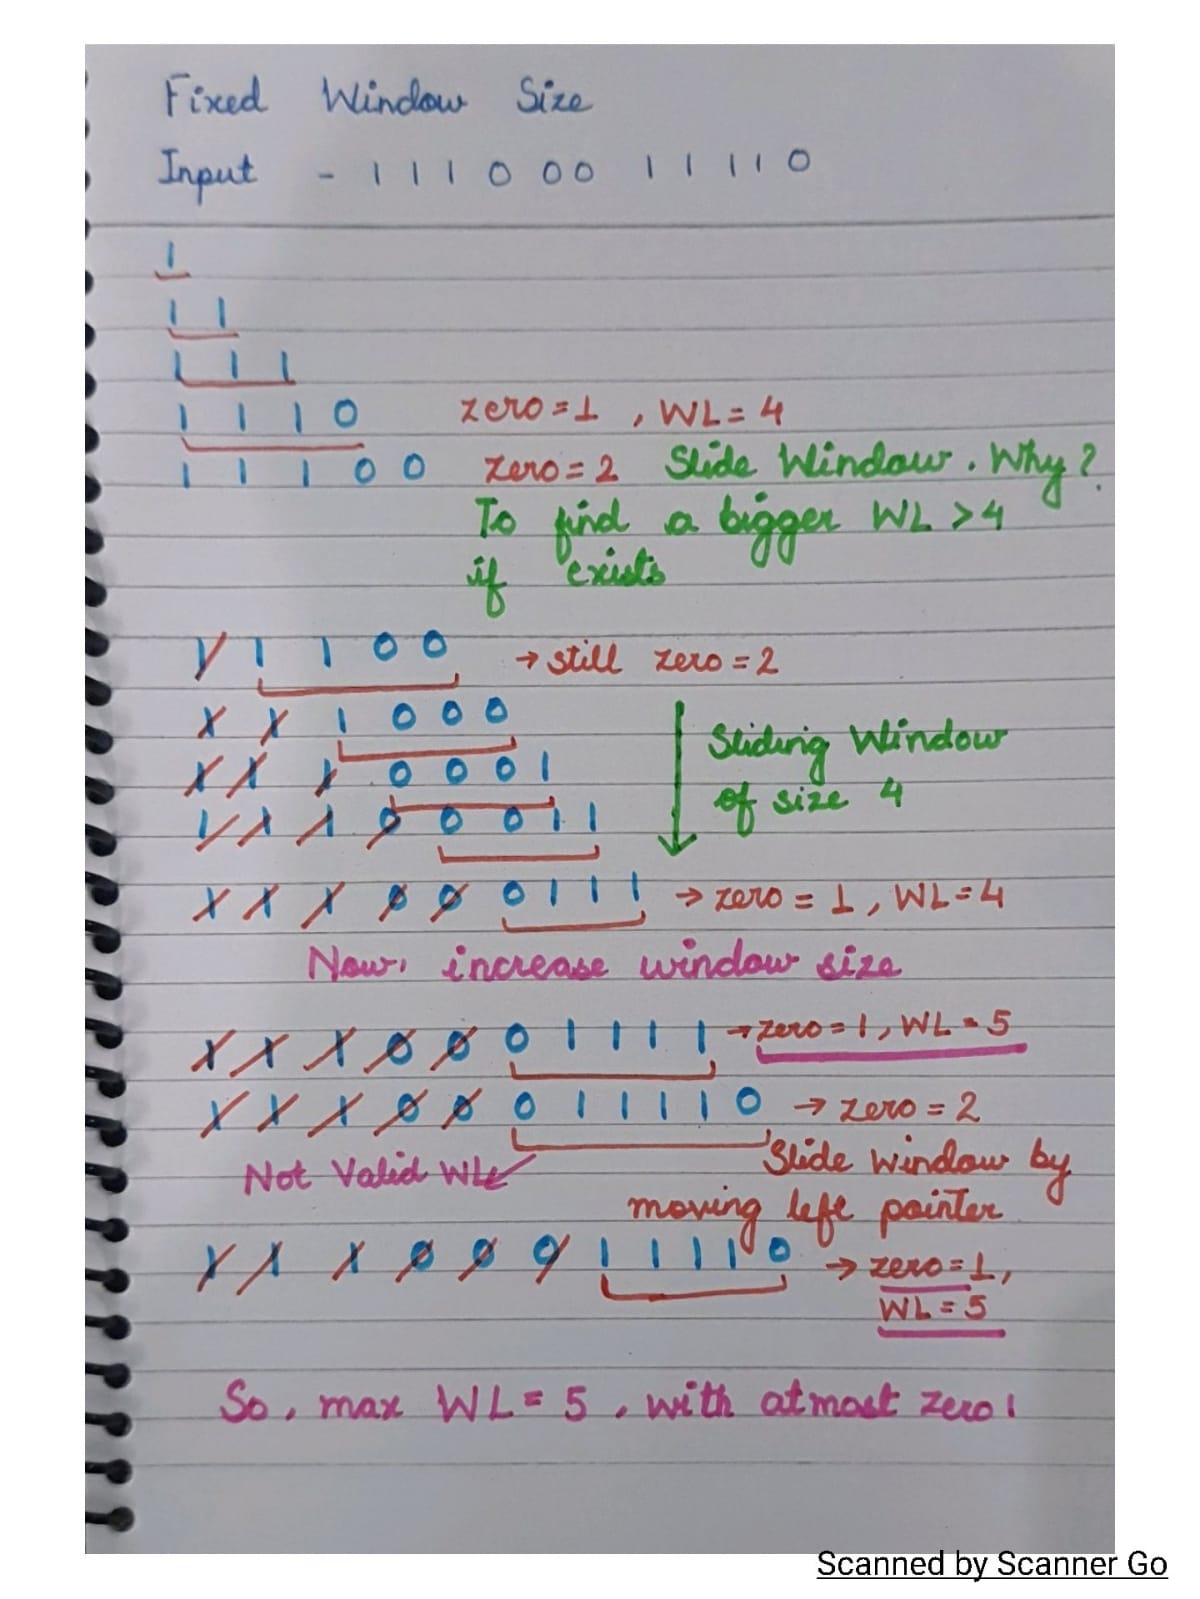 Fixed Window Size
Input - 1 1 1 0 0 0 1 1 1 1 0
1
1 1
1 1 1
1 1 1 0 zero = 1 , WL = 4
1 1 1 0 0 zero = 2 Slide Window. Why?
To find a bigger WL > 4
if exists
1 1 1 0 0 → still zero = 2
1 1 1 0 0 0
1 1 1 0 0 0 1
Sliding Window
of size 4
1 1 1 0 0 0 1 1
1 1 1 0 0 0 1 1 1 → zero = 1, WL = 4
Now, increase window size
1 1 1 0 0 0 1 1 1 1 → zero = 1, WL = 5
1 1 1 0 0 0 1 1 1 1 0 → zero = 2
Not Valid WL
Slide Window by
moving left pointer
1 1 1 0 0 0 1 1 1 1 0 → zero = 1,
WL = 5
So, max WL = 5, with atmost zero 1
Scanned by Scanner Go